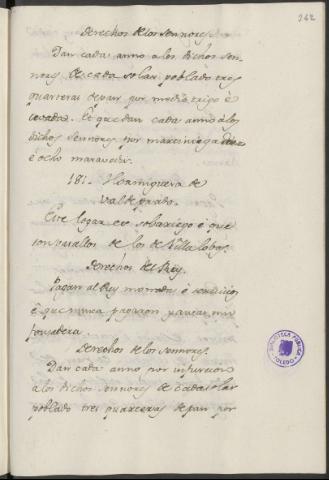 262
Derechos de los sennores.
Dan cada anno a los dichos sen-
nores de cada solar poblado tres
quarteras de pan por medio trigo è
cevada. Et que dan cada anno á los
dichos sennores por marciniega diez
è ocho maravedis.
181. Hormiguera de
Val de prado.
Este logar es solariego è que
son vasallos de los de Villa lobos.
Derechos del Rey.
Pagan al Rey monedas è servicios
è que nunca pagaron yantar nin
fonsadera.
Derechos de los sennores.
Dan cada anno por infurcion
a los dichos sennores de cada solar
poblado tres quarteras de pan por
BIBLIOTECA PUBLICA
TOLEDO